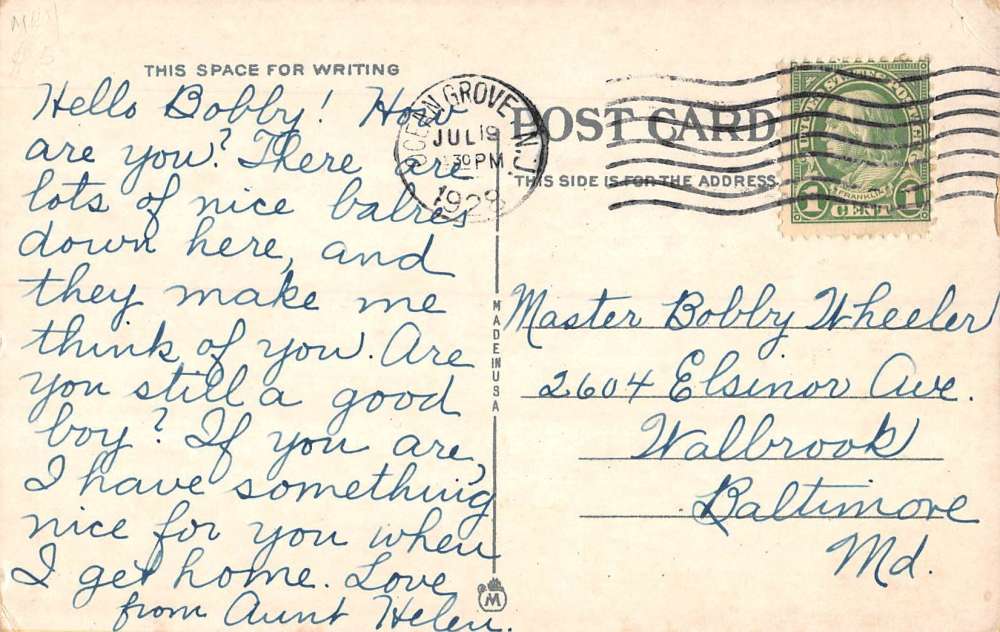 THIS SPACE FOR WRITING
Hello Bobby! How
are you? There are
lots of nice babies
down here, and
they make me
think of you. Are
you still a good
boy? If you are,
I have something
nice for you when
I get home. Love
from Aunt Helen.
OCEAN GROVE N.J.
JUL 19
30 PM
1928
POST CARD
THIS SIDE IS FOR THE ADDRESS
UNITED STATES POSTAGE
FRANKLIN
1 CENT 1
MADE IN USA
M
Master Bobby Wheeler
2604 Elsinor Ave.
Walbrook
Baltimore
Md.